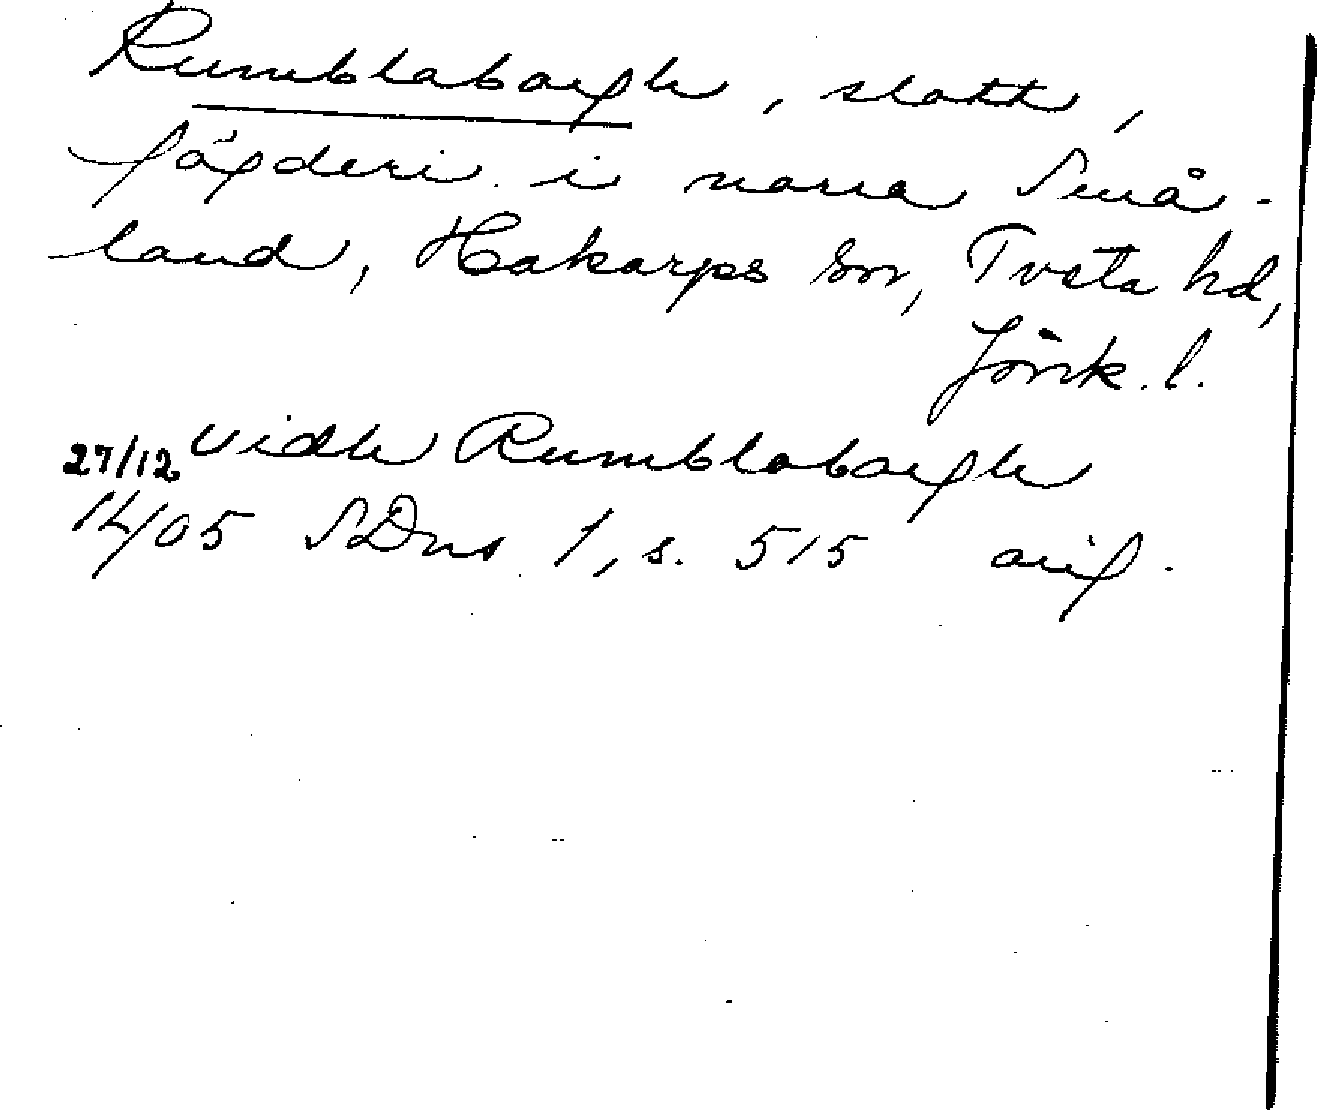 Rumblaborgh, slott,
fögderi i norra Små-
land, Hakarps sn, Tveta hd,
Jönk. l.
27/12 vidh Rumblaborgh
14/05 SDns 1, s. 515 orig.